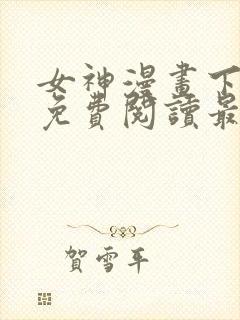 女神漫畫下
免費閱讀最
賀雪平